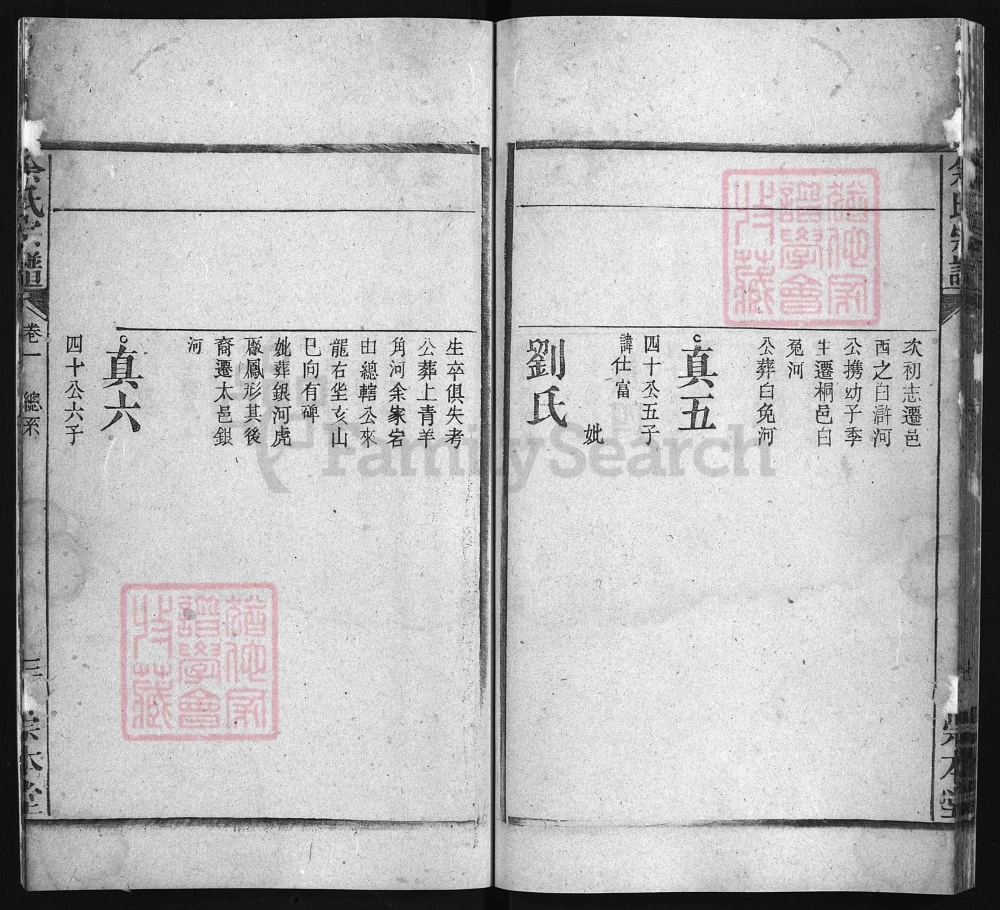 余氏宗譜
次初志遷邑
西之白滸河
公携幼子季
生遷桐邑白
兔河
公葬白兔河
真五
四十公五子
諱仕富
妣
劉氏
崇本堂
生卒俱失考
公葬上青羊
角河余家宕
由總轄公來
龍右坐亥山
巳向有碑
妣葬銀河虎
形其後
裔遷太邑銀
河
真六
四十公六子
余氏宗譜
卷一 總系
三
崇本堂
猶他家
譜學會
收藏
猶他家
譜學會
收藏
FamilySearch